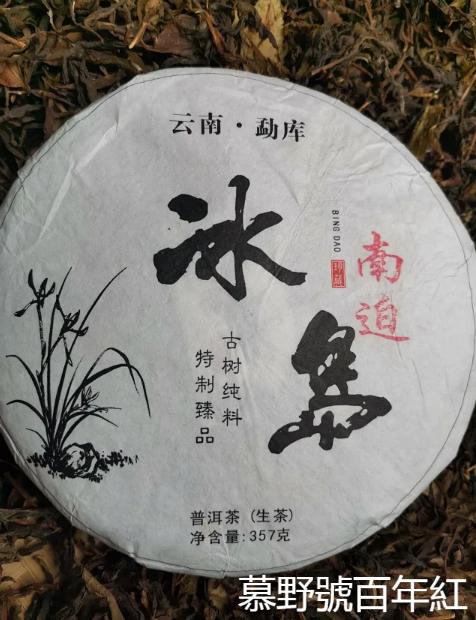 云南·勐库
冰
島
BING DAO
南迫
古树纯料
特制臻品
普洱茶（生茶）
净含量:357克
慕野號百年紅